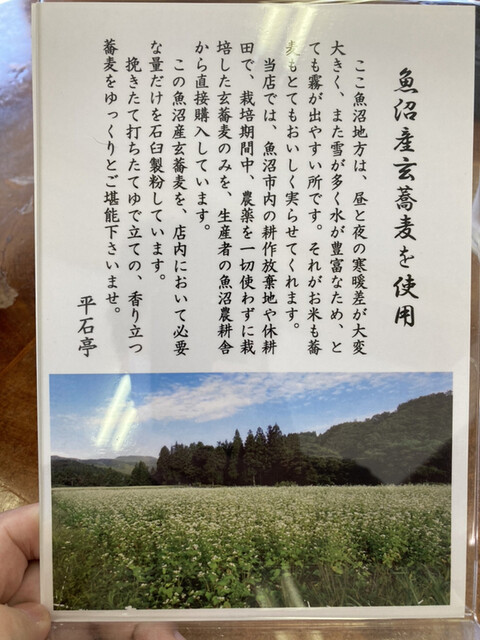 魚沼産玄蕎麦を使用
ここ魚沼地方は、昼と夜の寒暖差が大変
大きく、また雪が多く水が豊富なため、と
ても霧が出やすい所です。それがお米も蕎
麦もとてもおいしく実らせてくれます。
当店では、魚沼市内の耕作放棄地や休耕
田で、栽培期間中、農薬を一切使わずに栽
培した玄蕎麦のみを、生産者の魚沼農耕舎
から直接購入しています。
この魚沼産玄蕎麦を、店内において必要
な量だけを石臼製粉しています。
挽きたて打ちたてゆで立ての、香り立つ
蕎麦をゆっくりとご堪能下さいませ。
平石亭